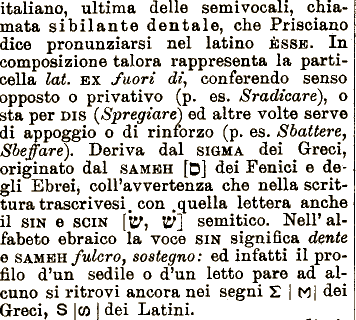 italiano, ultima delle semivocali, chia-
mata sibilante dentale, che Prisciano
dice pronunziarsi nel latino ÈSSE. In
composizione talora rappresenta la parti-
cella lat. EX fuori di, conferendo senso
opposto o privativo (p. es. Sradicare), o
sta per DIS (Spregiare) ed altre volte serve
di appoggio o di rinforzo (p. es. Sbattere,
Sbeffare). Deriva dal SIGMA dei Greci,
originato dal SAMEH [ס] dei Fenici e de-
gli Ebrei, coll'avvertenza che nella scrit-
tura trascrivesi con quella lettera anche
il SIN e SCIN [שׂ, שׁ] semitico. Nell'al-
fabeto ebraico la voce SIN significa dente
e SAMEH fulcro, sostegno: ed infatti il pro-
filo d'un sedile o d'un letto pare ad al-
cuno si ritrovi ancora nei segni Σ | M| dei
Greci, S | | dei Latini.